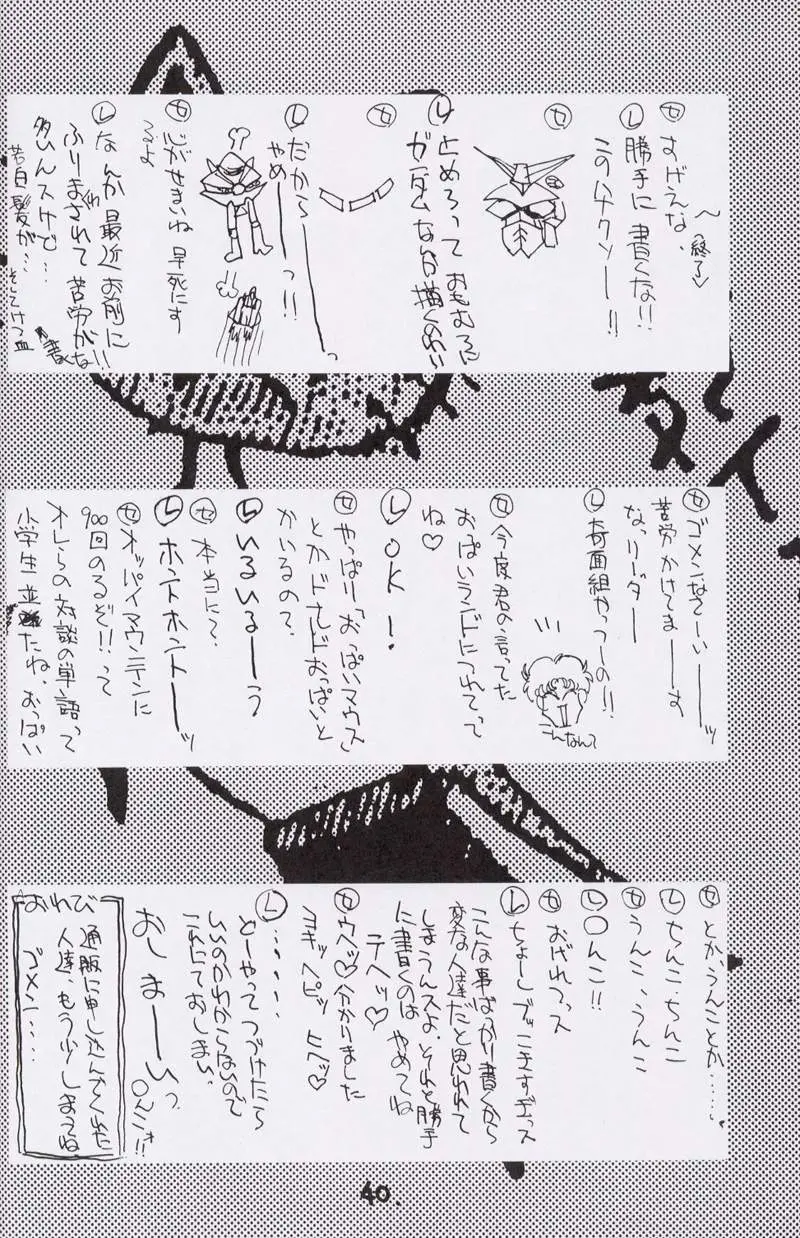 セ すげえな、
〜終了
レ 勝手に書くな!!
このハナクソー!!
セ
レ 止めろって おもむろに
ガンダムなんか描くのわい
セ
レ だから———っ
やめ——っ!!
セ 心がせまいね 早死にす
るよ
レ なんか最近お前に!!
ふりまわされて 苦労がな
多いんスケで…
苦白髪が…
セ ゴメンなさーいーーッ
苦労かけてまーーす
なっリーダー
レ 奇面組やっつーの!!
こんなんて
セ 今度君の言ってた
おっぱいランドにつれてって
ね♡
レ OK!
セ やっぱり「おっぱいマウス」
とかドナルドおっぱいと
かいるの?
レ いるいるーーう
セ 本当に?
レ ホントホントーーッ
セ オッパイマウンテンに
900回のるぞ!!って
オレらの対談の単語って
小学生並だね、おっぱい
セ とかうんことか……
レ ちんこ・ちんこ
セ うんこ、うんこ
レ 〇んこ!!
セ おげれつっス
レ ちょーしブッこきすぎっス
こんな事ばっかり書くから
変な人達だと思われて
しまうんスよ、それと勝手
に書くのは やめてね
テヘッ♡
セ ウヘッ♡分かりました
ヨキッ ヘピッ ヒヘッ♡
レ ……
どーやってつづけたら
いいのかわからないので
これにておしまい、
おしまーいっ
〇んこ!!
おわび
通販に申し込んでくれた
人達、もう少しまってね
ゴメン…
40.